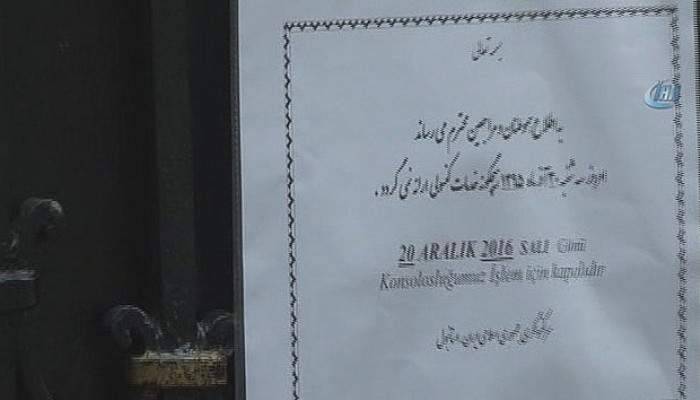 بسمه تعالی
به اطلاع هموطنان و مراجعین محترم می رساند
امروز سه شنبه ۳۰ آذر ماه ۱۳۹۵ هیچگونه خدمات کنسولی ارائه نمی گردد .
20 ARALIK 2016 SALI Günü
Konsolosluğumuz İşlem için kapalıdır
سرکنسولگری جمهوری اسلامی ایران - استانبول
İHA